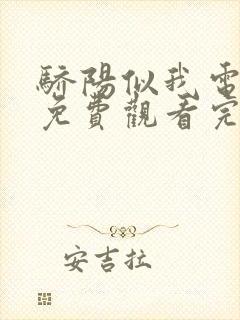 驕陽似我電
免費觀看完
安吉拉